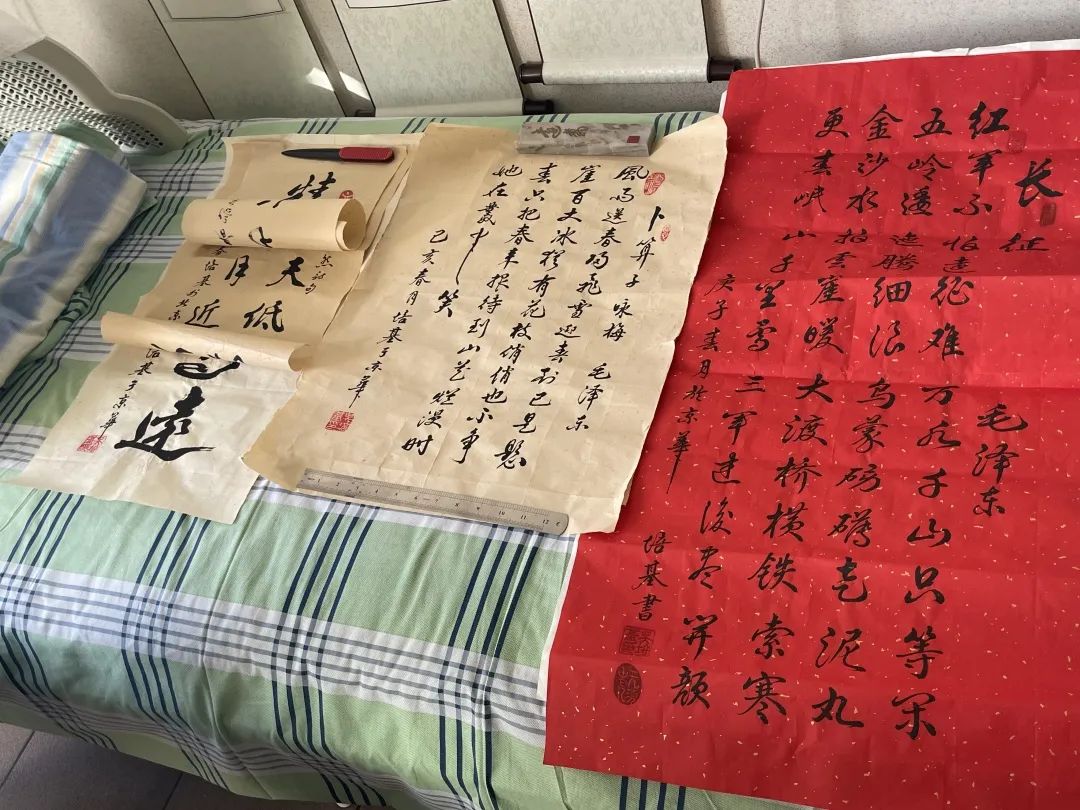 长征 毛泽东
红军不怕远征难万水千山只等闲
五岭逶迤腾细浪乌蒙磅礴走泥丸
金沙水拍云崖暖大渡桥横铁索寒
更喜岷山千里雪三军过後尽开颜
庚子春月於京華
培基書
卜算子 咏梅 毛泽东
風雨送春归飛雪迎春到已是懸
崖百丈冰犹有花枝俏俏也不争
春只把春来报待到山花烂漫时
她在叢中笑
己亥春月培基于京華
天低
月近
远
培基于京華